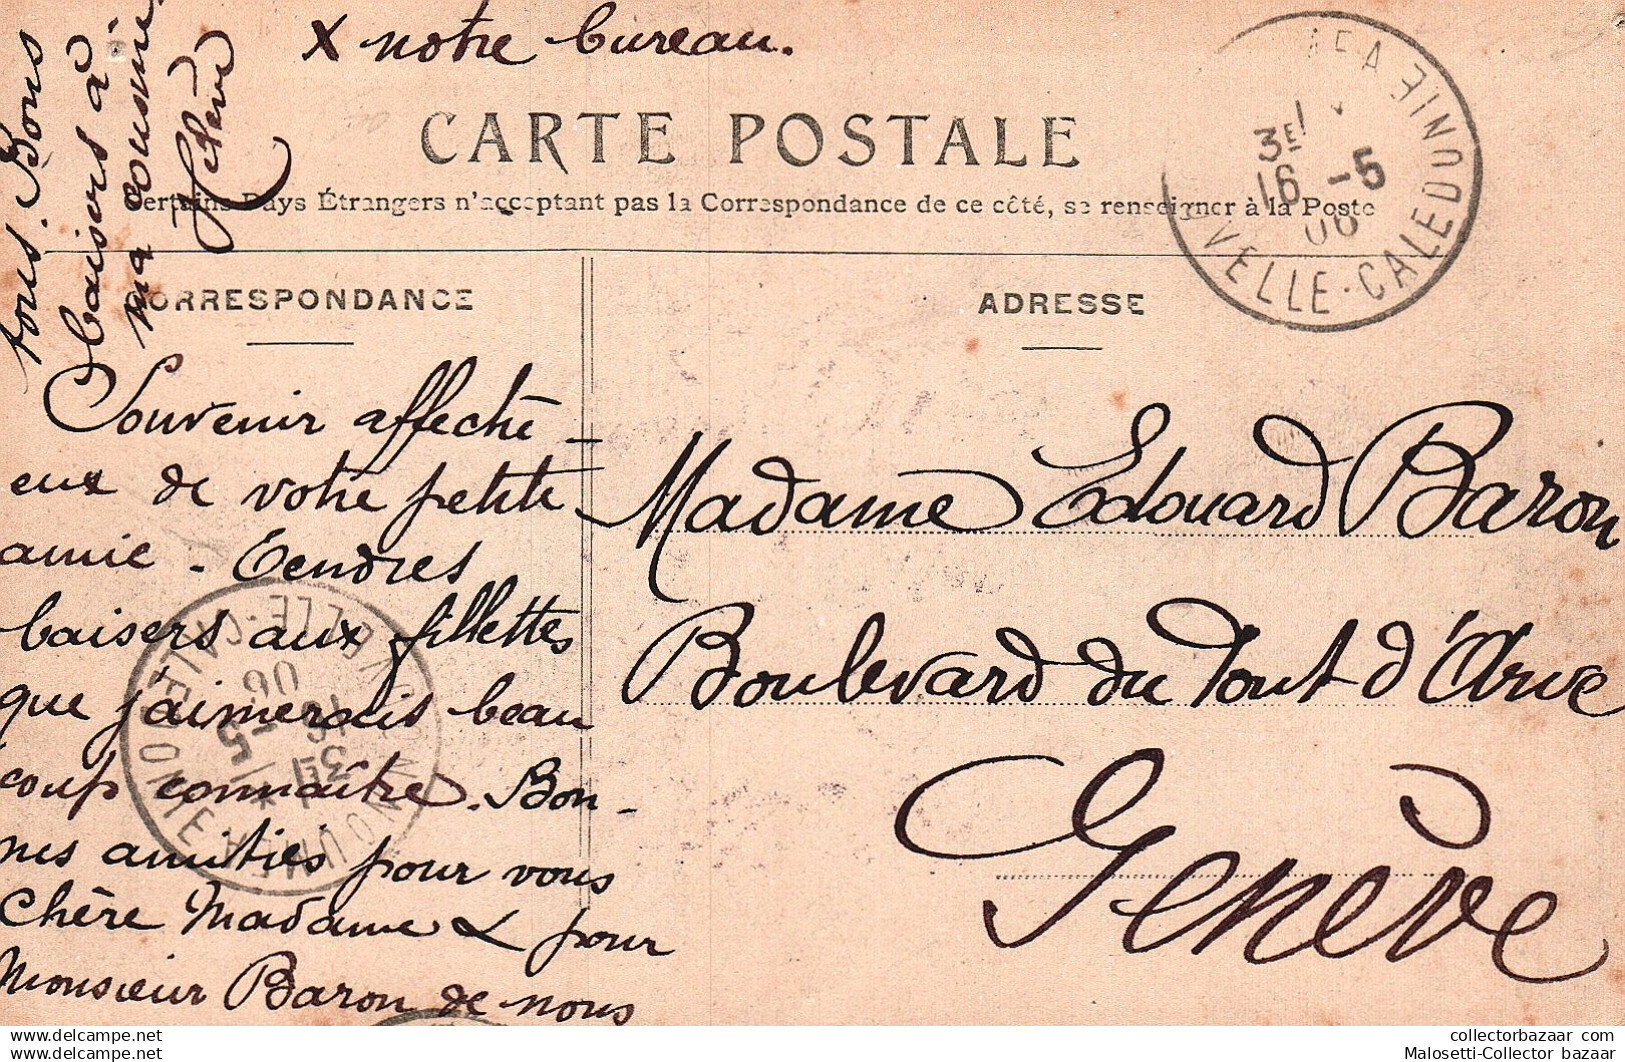 X notre bureau.
CARTE POSTALE
Certains Pays Étrangers n'acceptant pas la Correspondance de ce côté, se renseigner à la Poste
CORRESPONDANCE
Souvenir affectu-
eux de votre petite
amie. Tendres
baisers aux fillettes
que j'aimerais beau
coup connaître. Bon-
nes amitiés pour vous
Chère Madame & pour
Monsieur Baron de nous
tous. Bons
baisers à
ma cousine
Hélène
ADRESSE
Madame Edouard Baron
Boulevard du Pont d'Arve
Genève
3E/
16 -5
06
VELLE-CALEDONIE
3E/
16 -5
06
NOUVELLE-CALEDONIE
collectorbazaar.com
Malosetti-Collector bazaar
www.delcampe.net
www.delcampe.net